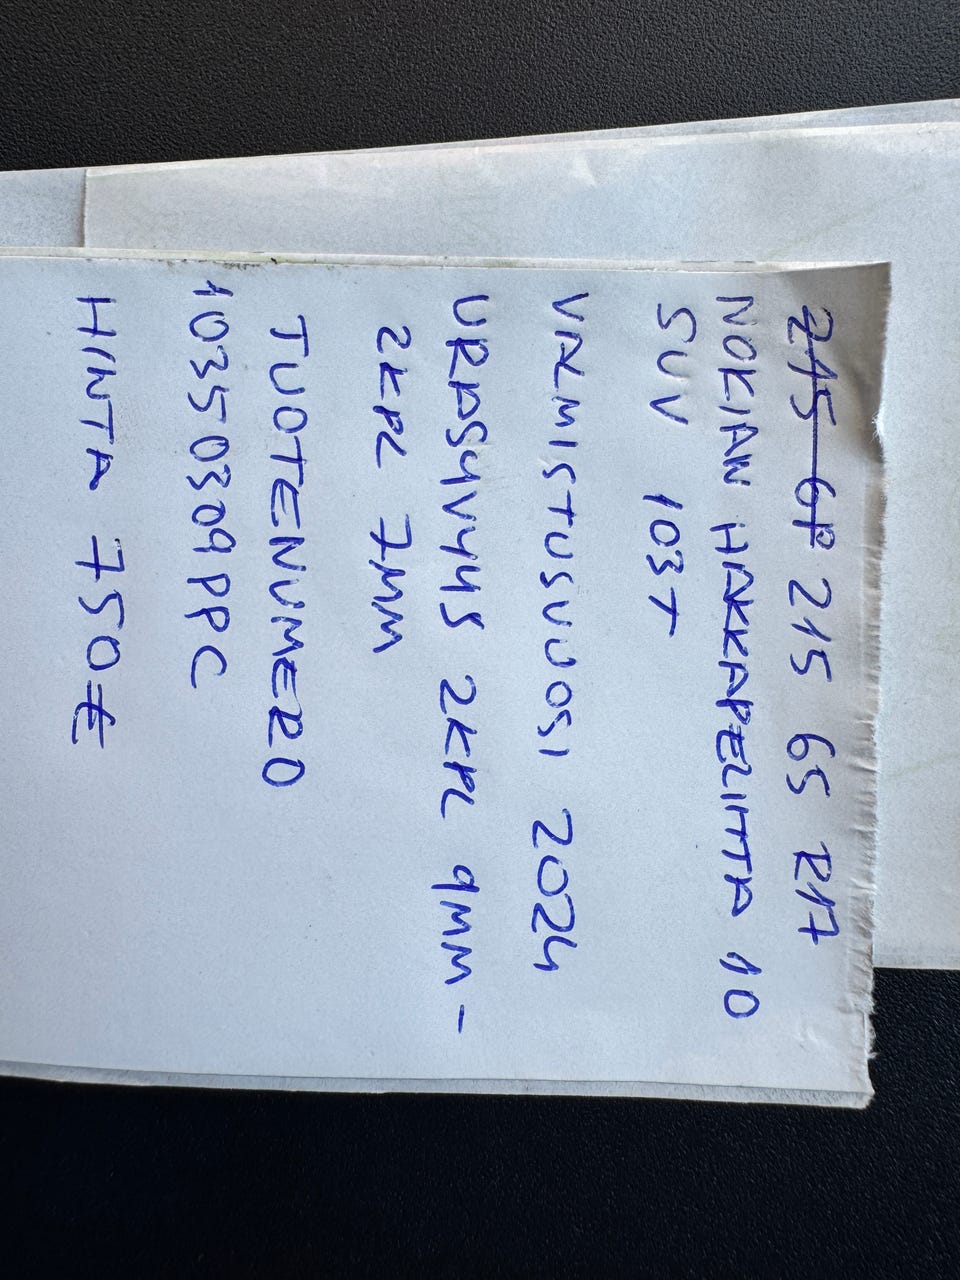 215 6P 215 65 R17
NOKIAN HAKKAPELIITTA 10
SUV 103T
VALMISTUSVUOSI 2024
URASYVYYS 2KPL 9MM -
2KPL 7MM
TUOTENUMERO
10350309PPC
HINTA 750€